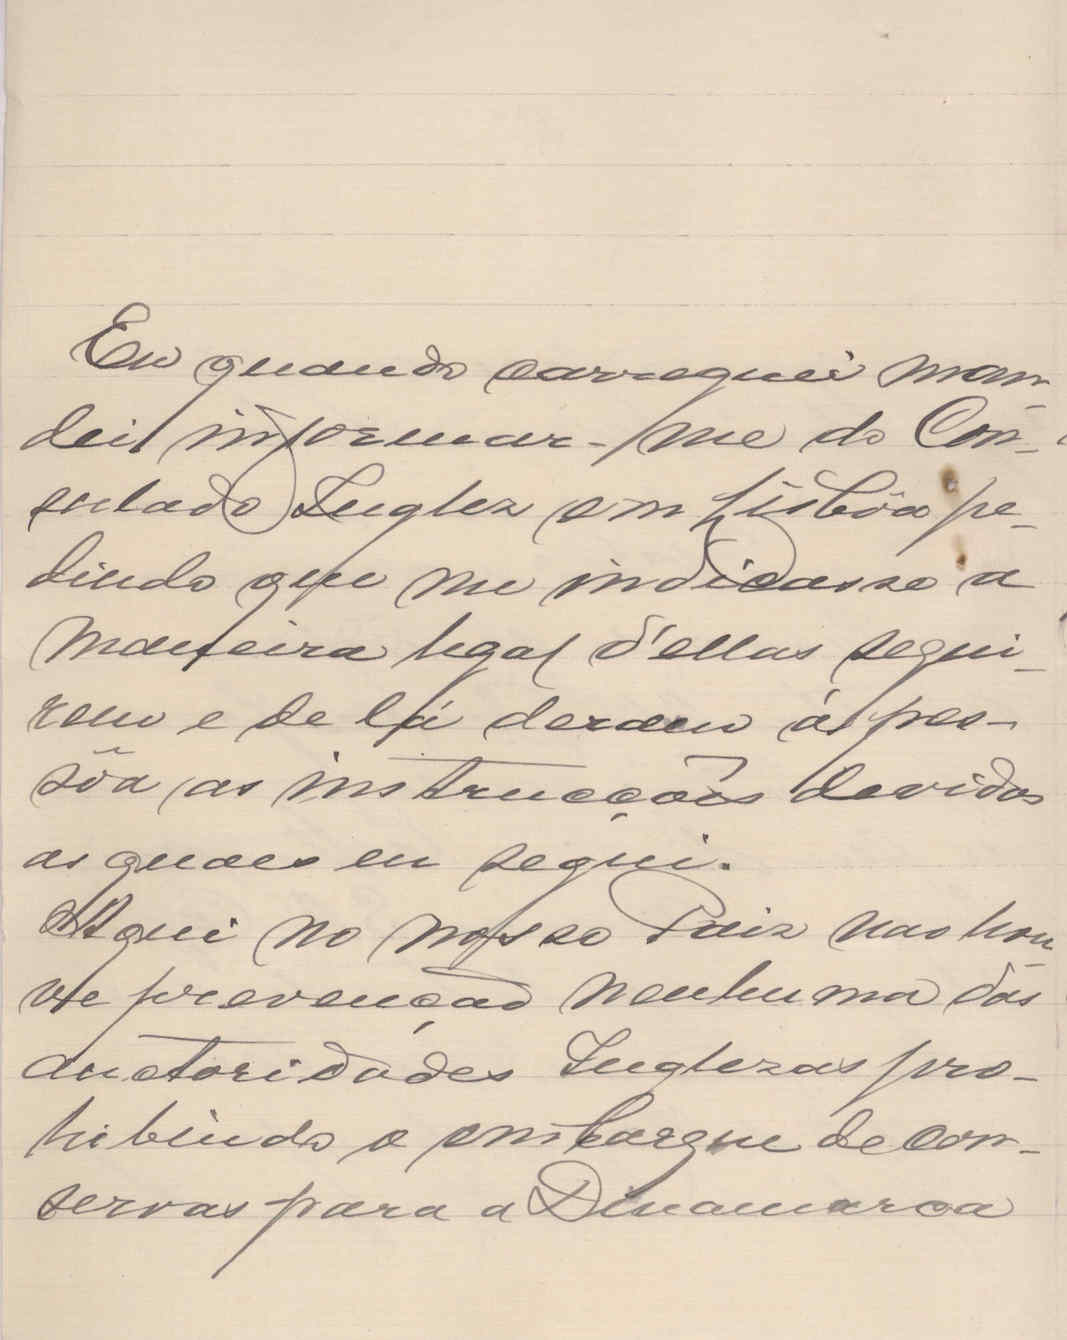 Eu quando carreguei man-
dei informar-me do Con-
sulado Inglez em Lisbôa pe-
dindo que me indicasse a
maneira legal d'ellas segui-
rem e de lá deram á pes-
sôa as instrucções devidas
as quaes eu segui.
Aqui no nosso Paiz nao hou
ve prevenção nenhuma das
auctoridádes Inglezas pro-
hibindo o embarque de con-
servas para a Dinamarca